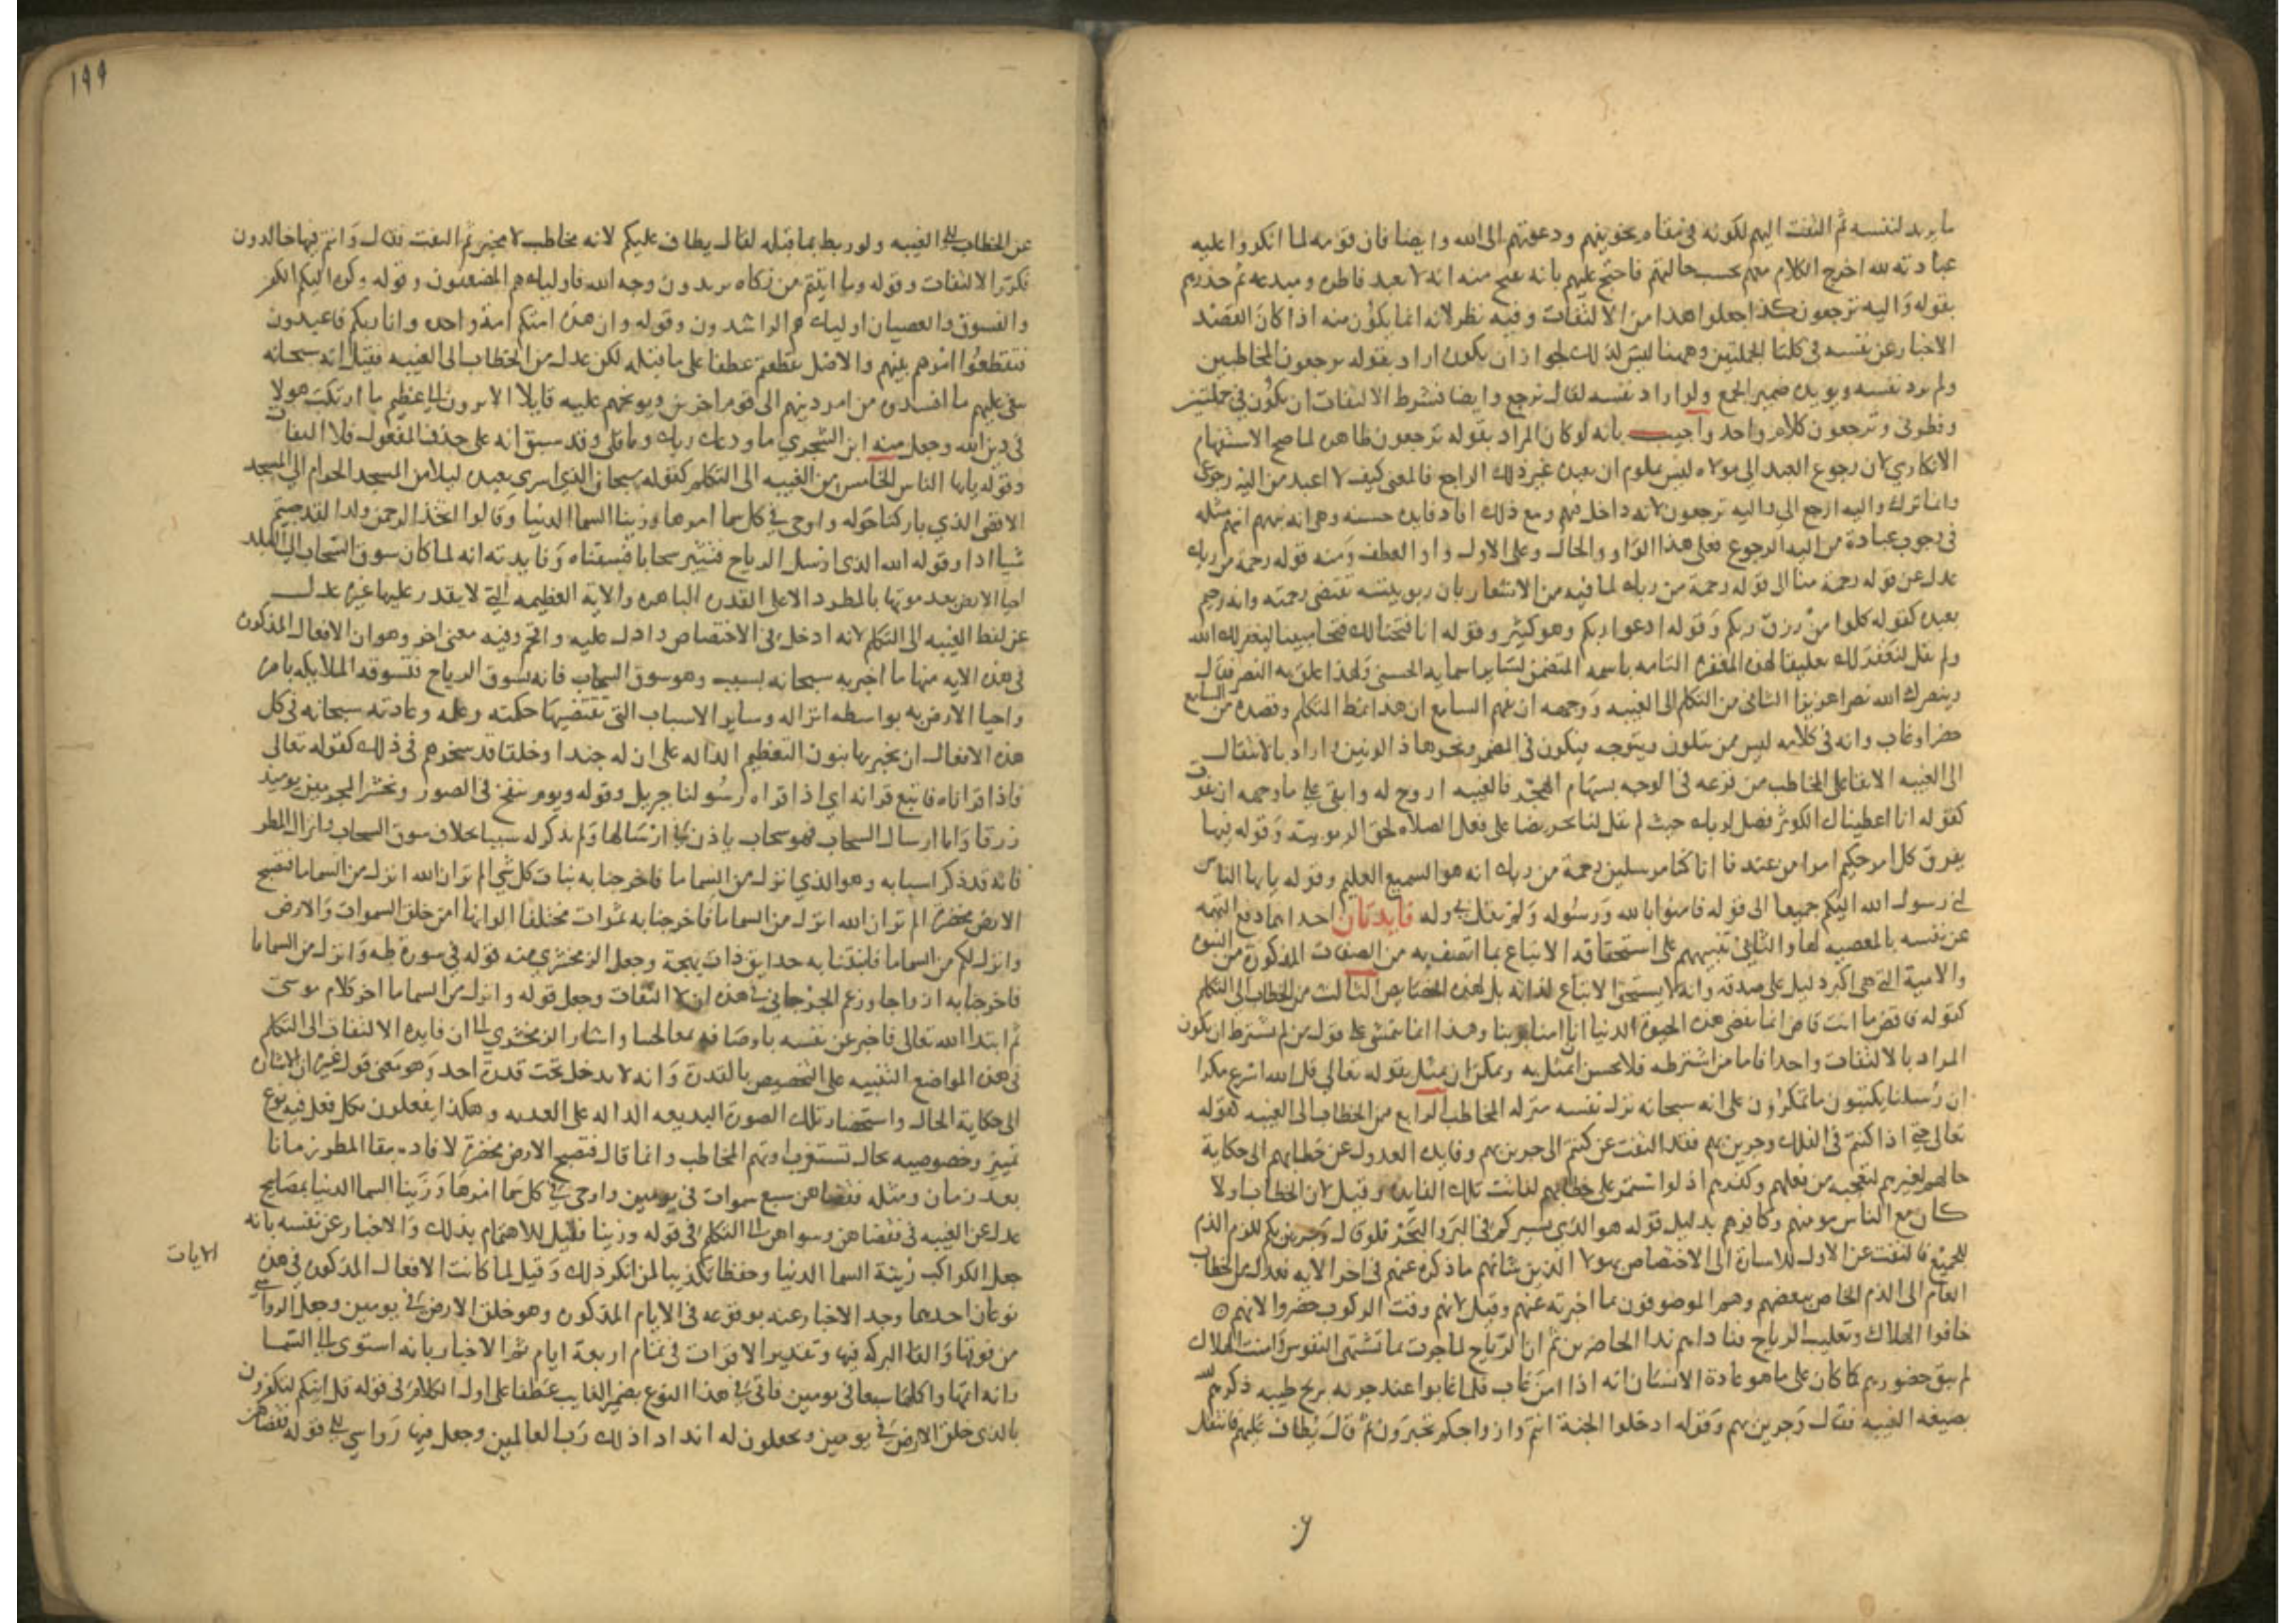 ما يريد لنفسه ثم التفت اليهم لكونه في مقام تخويفهم ودعوتهم الى الله وايضا فان قومه لما انكروا عليه
عبادته لله اخرج الكلام معهم بحسب حالهم فاحتج عليهم بانه يقبح منه انه لا يعبد فاطره ومبدعه ثم حذرهم
بقوله واليه ترجعون كذا جعلوا هذا من الالتفات وفيه نظر لانه انما يكون منه اذا كان القصد
الاخبار عن نفسه في كلتا الجملتين وههنا ليس كذلك لجواز ان يكون اراد بقوله ترجعون المخاطبين
ولم يرد نفسه ويويده ضمير الجمع ولو اراد نفسه لقال نرجع وايضا فشرط الالتفات ان يكون في جملتين
وفطرني وترجعون كلام واحد واجيب بانه لو كان المراد بقوله ترجعون ظاهره لما صح الاستفهام
الانكاري لان رجوع العبد الى مولاه ليس بملزم ان يعبده غير ذلك الراجع فالمعنى كيف لا اعبد من اليه رجوعي
وانما ترك واليه ارجع الى واليه ترجعون لانه داخل فيهم ومع ذلك افاد فايدة حسنه وهي انه نبههم انهم مثله
في وجوب عبادة من اليه الرجوع فعلى هذا الواو للحال وعلى الاول واو العطف ومنه قوله رحمة من ربك
عدل عن قوله رحمة منا الى قوله رحمة من ربك لما فيه من الاشعار بان ربوبيته تقتضي رحمته وانه رحيم
بعبده كقوله كلوا من رزق ربكم وقوله ادعوا ربكم وهو كثير وقوله انا فتحنا لك فتحا مبينا ليغفر لك الله
ولم يقل لنغفر لك تعليقا لهذه المغفرة التامه باسمه المتضمن لساير اسمايه الحسنى ولهذا علق به النصر فقال
وينصرك الله نصرا عزيزا الثاني من التكلم الى الغيبه ووجهه ان يفهم السامع ان هذا نمط المتكلم وقصده من السامع
حضر او غاب وانه في كلامه ليس ممن يتلون ويتوجه فيكون في المضمر ونحوه ذا لونين واراد بالانتقال
الى الغيبه الابقا على المخاطب من قرعه في الوجه بسهام الهجر فالغيبه اروح له وابقى على ما وجهه ان يفوت
كقوله انا اعطيناك الكوثر فصل لربك حيث لم يقل لنا تحريضا على فعل الصلاه لحق الربوبيه وقوله فيها
يفرق كل امر حكيم امرا من عندنا انا كنا مرسلين رحمة من ربك انه هو السميع العليم وقوله يا ايها الناس
اني رسول الله اليكم جميعا الى قوله فامنوا بالله ورسوله ولم يقل بي وله فايدتان احداهما دفع التهمه
عن نفسه بالعصبيه لها والثاني تنبيههم على استحقاقه الاتباع بما اتصف به من الصفات المذكورة من النبوة
والامية التي هي اكبر دليل على صدقه وانه لا يستحق الاتباع لذاته بل لهذه الخصايص الثالث من الخطاب الى التكلم
كقوله فاقض ما انت قاض انما تقضي هذه الحيوة الدنيا انا امنا بربنا وهذا انما يتمشى على قول من لم يشترط ان يكون
المراد بالالتفات واحدا فاما من اشترطه فلا يحسن ان يمثل به ويمكن ان يمثل بقوله تعالى قل الله اسرع مكرا
ان رسلنا يكتبون ما تمكرون على انه سبحانه نزل نفسه منزله المخاطب الرابع من الخطاب الى الغيبه كقوله
تعالى حتى اذا كنتم في الفلك وجرين بهم فقد التفت عن كنتم الى جرين بهم وفايدة العدول عن خطابهم الى حكاية
حالهم لغيرهم لتعجبه من فعلهم وكفرهم اذ لو استمر على خطابهم لفاتت تلك الفايدة وقيل لان الخطاب اولا
كان مع الناس مومنهم وكافرهم بدليل قوله هو الذي يسيركم في البر والبحر فلو قال وجرين بكم للزم الذم
للجميع فالتفت عن الاول للاشارة الى الاختصاص بهولا الذين شانهم ما ذكره عنهم في اخر الايه فعدل عن الخطاب
العام الى الذم الخاص ببعضهم وهم الموصوفون بما اخبر به عنهم وقيل لانهم وقت الركوب حضروا لانهم
خافوا الهلاك وتغليب الرياح فناداهم ندا الحاضرين ثم ان الرياح لما جرت بما تشتهي النفوس وامنت الهلاك
لم يبق حضورهم كما كان على ما هو عادة الانسان انه اذا امن غاب فلما غابوا عند جريه بريح طيبه ذكرهم الله
بصيغه الغيبه فقال وجرين بهم وقوله ادخلوا الجنة انتم وازواجكم تحبرون ثم قال يطاف عليهم فانتقل
١٩٩
عن الخطاب الى الغيبه ولو ربط بما قبله لقال يطاف عليكم لانه مخاطب لا مخبر ثم التفت فقال وانتم فيها خالدون
فكرر الالتفات وقوله وما اتيتم من زكاه تريدون وجه الله فاوليك هم المضعفون وقوله وكره اليكم الكفر
والفسوق والعصيان اوليك هم الراشدون وقوله وان هذه امتكم امة واحدة وانا ربكم فاعبدون
فتقطعوا امرهم بينهم والاصل تقطعتم عطفا على ما قبله لكن عدل من الخطاب الى الغيبه فقيل انه سبحانه
نعى عليهم ما افسدوه من امر دينهم الى قوم اخرين ويوبخهم عليه قايلا الا ترون الى عظيم ما ارتكب هولا
في دين الله وجعل منه ابن الشجري ما ودعك ربك وما قلى وقد سبق انه على حذف المفعول فلا التفات
وقوله يا ايها الناس الخامس من الغيبه الى التكلم كقوله سبحان الذي اسرى بعبده ليلا من المسجد الحرام الى المسجد
الاقصى الذي باركنا حوله واوحى في كل سما امرها وزينا السما الدنيا وقالوا اتخذ الرحمن ولدا لقد جيتم
شيا ادا وقوله الله الذي ارسل الرياح فتثير سحابا فسقناه وفايدته انه لما كان سوق السحاب الى البلد
احيا الارض بعد موتها بالمطر دالا على القدرة الباهرة والاية العظيمه التي لا يقدر عليها غيره عدل
عن لفظ الغيبه الى التكلم لانه ادخل في الاختصاص وادل عليه وافخر وفيه معنى اخر وهو ان الافعال المذكورة
في هذه الايه منها ما اخبر به سبحانه بسببه وهو سوق السحاب فانه يسوق الرياح فتسوقه الملايكه بامره
واحيا الارض به بواسطه انزاله وساير الاسباب التي تقتضيها حكمته وعلمه وعادته سبحانه في كل
هذه الافعال ان يخبر بها بنون التعظيم الداله على ان له جندا وخلقا قد سخرهم في ذلك كقوله تعالى
فاذا قراناه فاتبع قرانه اي اذا قراه رسولنا جبريل وقوله ويوم ينفخ في الصور ونحشر المجرمين يوميذ
زرقا واما ارسال السحاب فهو سحاب ياذن في ارسالها ولم يذكر له سببا بخلاف سوق السحاب وانزال المطر
فانه قد ذكر اسبابه وهو الذي انزل من السما ما فاخرجنا به نبات كل شي الم تر ان الله انزل من السما ما فتصبح
الارض مخضرة الم تر ان الله انزل من السما ما فاخرجنا به ثمرات مختلفا الوانها امن خلق السموات والارض
وانزل لكم من السما ما فانبتنا به حدايق ذات بهجة وجعل الزمخشري منه قوله في سورة طه وانزل من السما ما
فاخرجنا به ازواجا وزعم الجرجاني في هذه ان لا التفات وجعل قوله وانزل من السما ما اخر كلام موسى
ثم ابتدا الله تعالى فاخبر عن نفسه باوصافه واشار الزمخشري الى ان فايدة الالتفات الى التكلم
في هذه المواضع التنبيه على التخصيص بالقدرة وانه لا يدخل تحت قدرة احد وهو معنى قول غيره ان الاشارة
الى حكاية الحال واستحضار تلك الصورة البديعه الداله على القدرة وهكذا يفعلون بكل فعل فيه نوع
تمييز وخصوصيه بحال تستغرب او تهم المخاطب وانما قال فتصبح الارض مخضرة لافادة بقا المطر زمانا
بعد زمان ومثله فقضاهن سبع سموات في يومين واوحى في كل سما امرها وزينا السما الدنيا بمصابيح
عدل عن الغيبه في فقضاهن وسواهن الى التكلم في قوله وزينا فقيل للاهتمام بذلك والاخبار عن نفسه بانه
جعل الكواكب زينة السما الدنيا وحفظا تكذيبا لمن انكر ذلك وقيل لما كانت الافعال المذكورة في هذه
الايات
نوعان احدهما وجد الاخبار عنه بوقوعه في الايام المذكورة وهو خلق الارض في يومين وجعل الرواسي
من فوقها والقا البركه فيها وتقدير الاقوات في تمام اربعة ايام ثم الاخبار بانه استوى الى السما
وانه اتمها واكملها سبعا في يومين فاتى في هذا النوع بضمير الغايب عطفا على اول الكلام في قوله قل اينكم لتكفرون
بالذي خلق الارض في يومين وتجعلون له اندادا ذلك رب العالمين وجعل فيها رواسي الى قوله فقضاهن